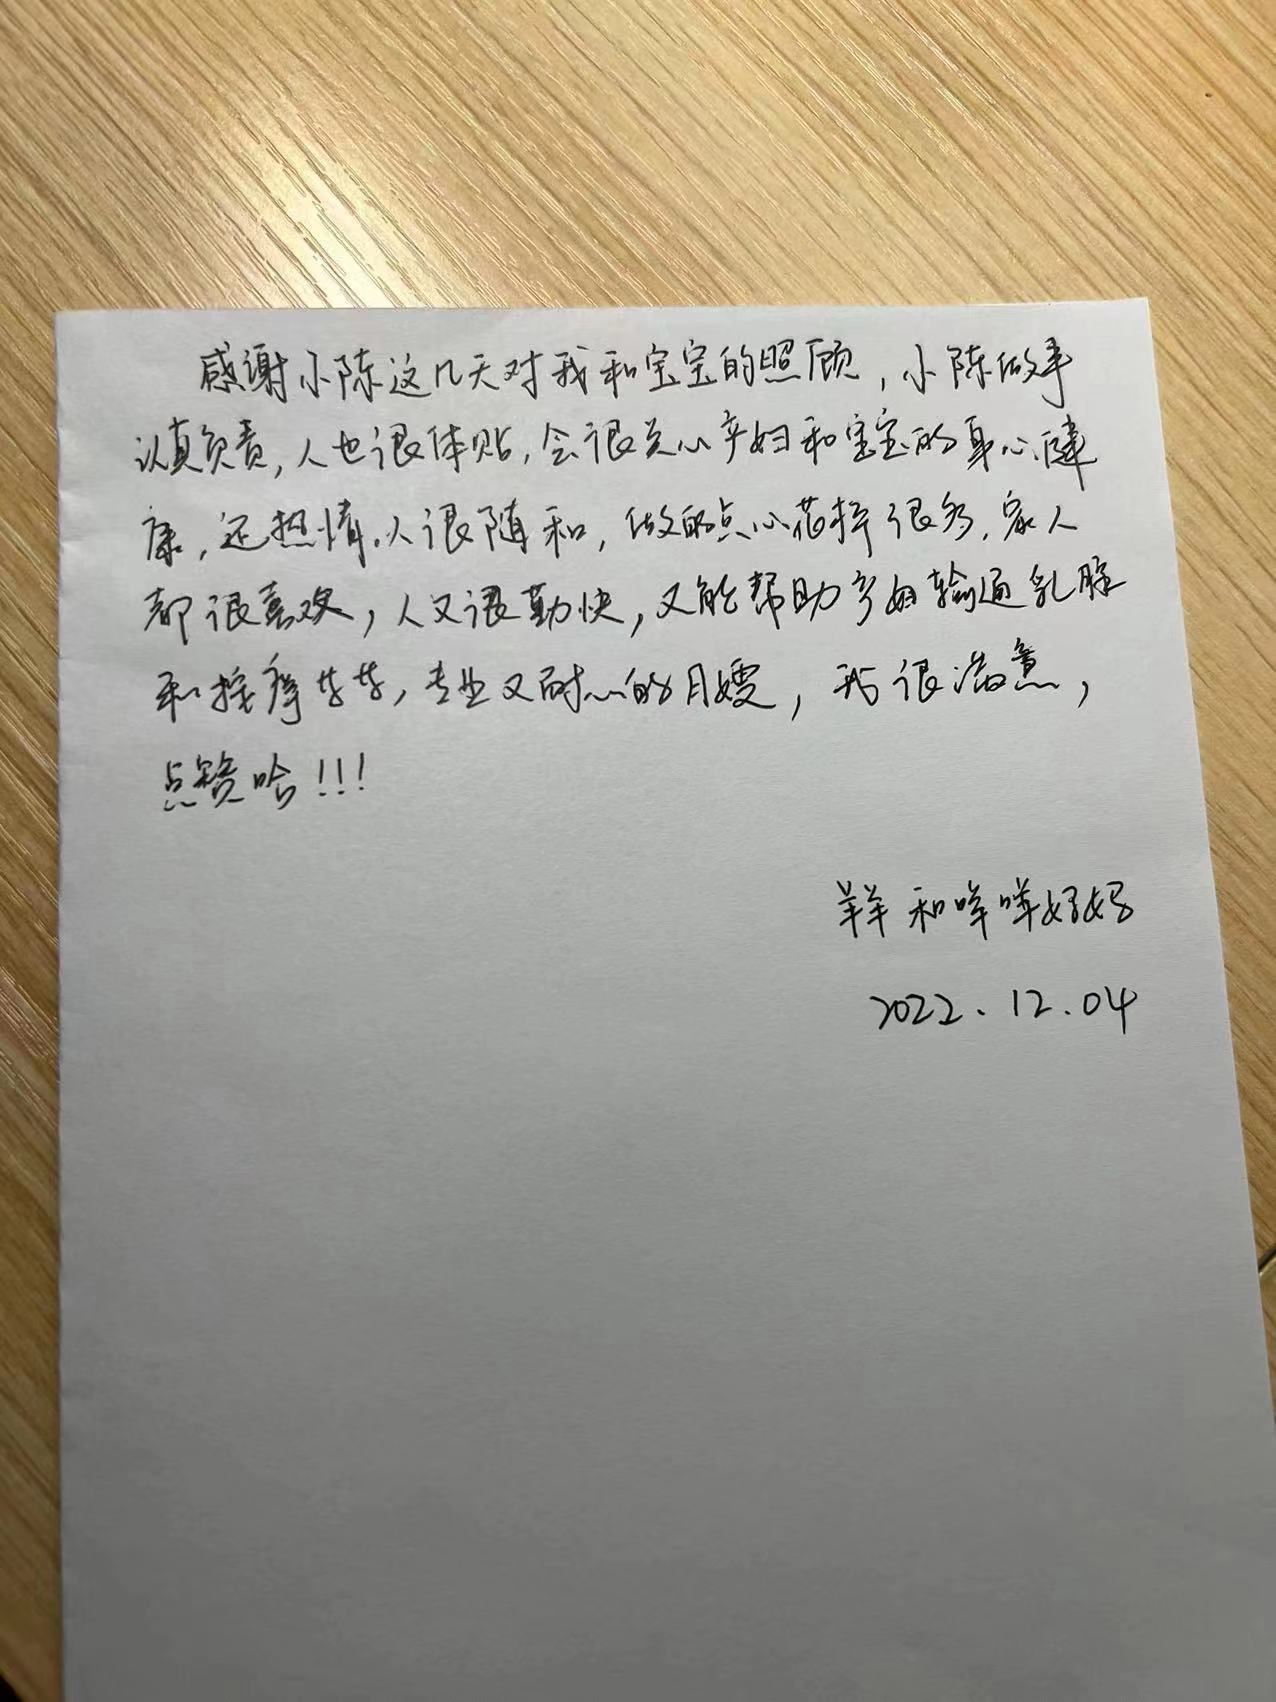 感谢小陈这几天对我和宝宝的照顾，小陈做事
认真负责，人也很体贴，会很关心产妇和宝宝的身心健
康，还热情，人很随和，做的点心花样很多，家人
都很喜欢，人又很勤快，又能帮助产妇输通乳腺
和按摩等等，专业又耐心的月嫂，我很满意，
点赞哈！！！
羊羊和咩咩妈妈
2022.12.04